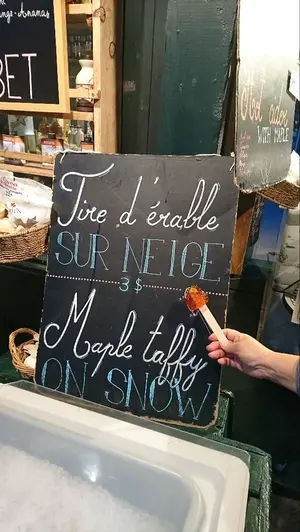 ange-Ananas
BET
Hot cider
WITH MAPLE
Tire d'érable
SUR NEIGE
3$
Maple taffy
ON SNOW